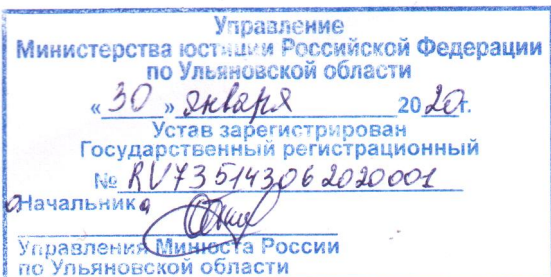 Управление
Министерства юстиции Российской Федерации
по Ульяновской области
« 30 » января 2020г.
Устав зарегистрирован
Государственный регистрационный
№ RU735143062020001
Начальник
Управления Минюста России
по Ульяновской области